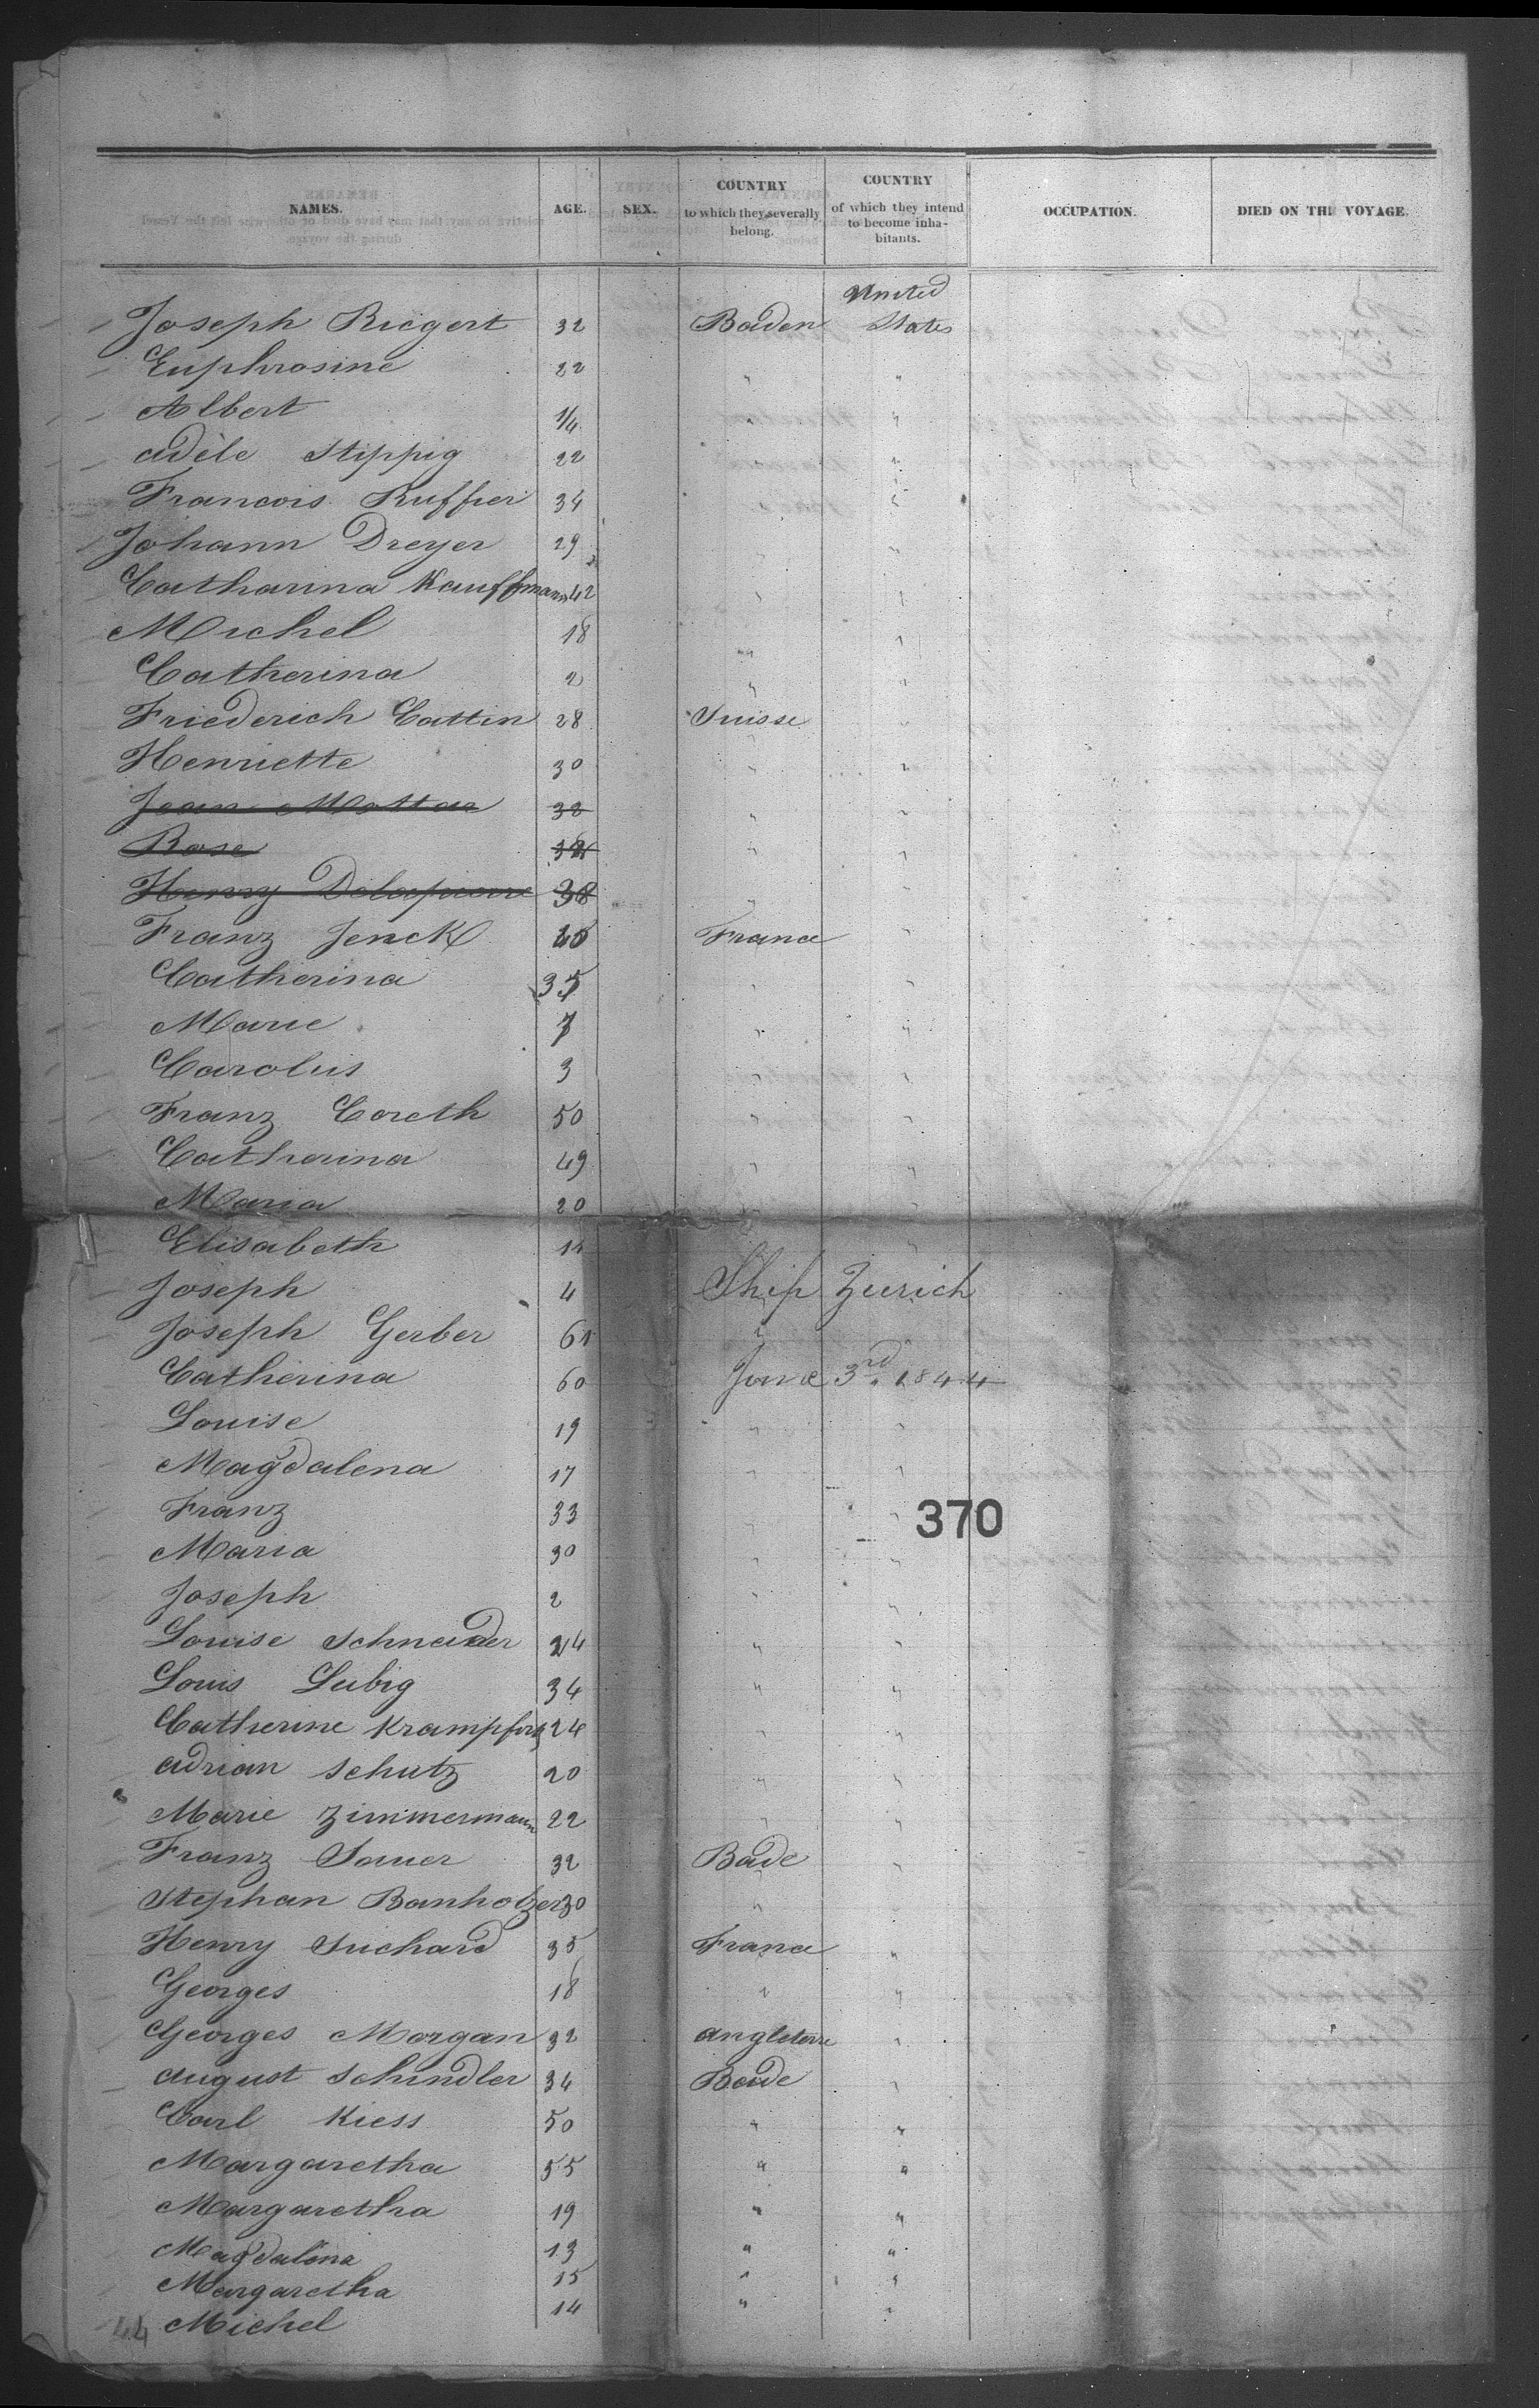 NAMES. AGE. SEX. COUNTRY to which they severally belong. COUNTRY of which they intend to become inhabitants. OCCUPATION. DIED ON THE VOYAGE.
United
Joseph Riegert 32 Baden States
Euphrosine 22 " "
Albert 1/4 " "
Adèle Stippig 22 "
Francois Ruffier 34 "
Johann Dreyer 29 " "
Catharina Kauffmann 42 " "
Michel 18 " "
Catherina 2 " "
Friederich Cattin 28 Suisse "
Henriette 30 " "
Jean Mottar 32 " "
Rose " "
Henry Delapierre 38 " "
Franz Jenck France "
Catherina 35 " "
Marie 7 " "
Carolus 3 " "
Franz Coreth 50 " "
Catherina 49 " "
Maria 20 " "
Elisabeth "
Joseph 4
Ship Zurich
Joseph Gerber 61 "
Catherina 60
June 3rd. 1844
Louise 19 " "
Magdalena 17 " "
Franz 33 " "
370
Maria 30 " "
Joseph 2 " "
Louise Schneider 24 " "
Louis Lubig 34 " "
Catherine 24 " "
Adrian Schutz 20 " "
Marie Zimmermann 22 " "
Franz Sauer 32 Bade "
Stephan Banholzer 30 " "
Henry Suchard 35 France "
Georges 18 " "
Georges Morgan 32 Angleterre "
August Schindler 34 Bade "
Carl Kiess 50 " "
Margaretha 55 " "
Margaretha 19 " "
Magdalina 13 " "
Margaretha 15 " "
Michel 14 " "
44